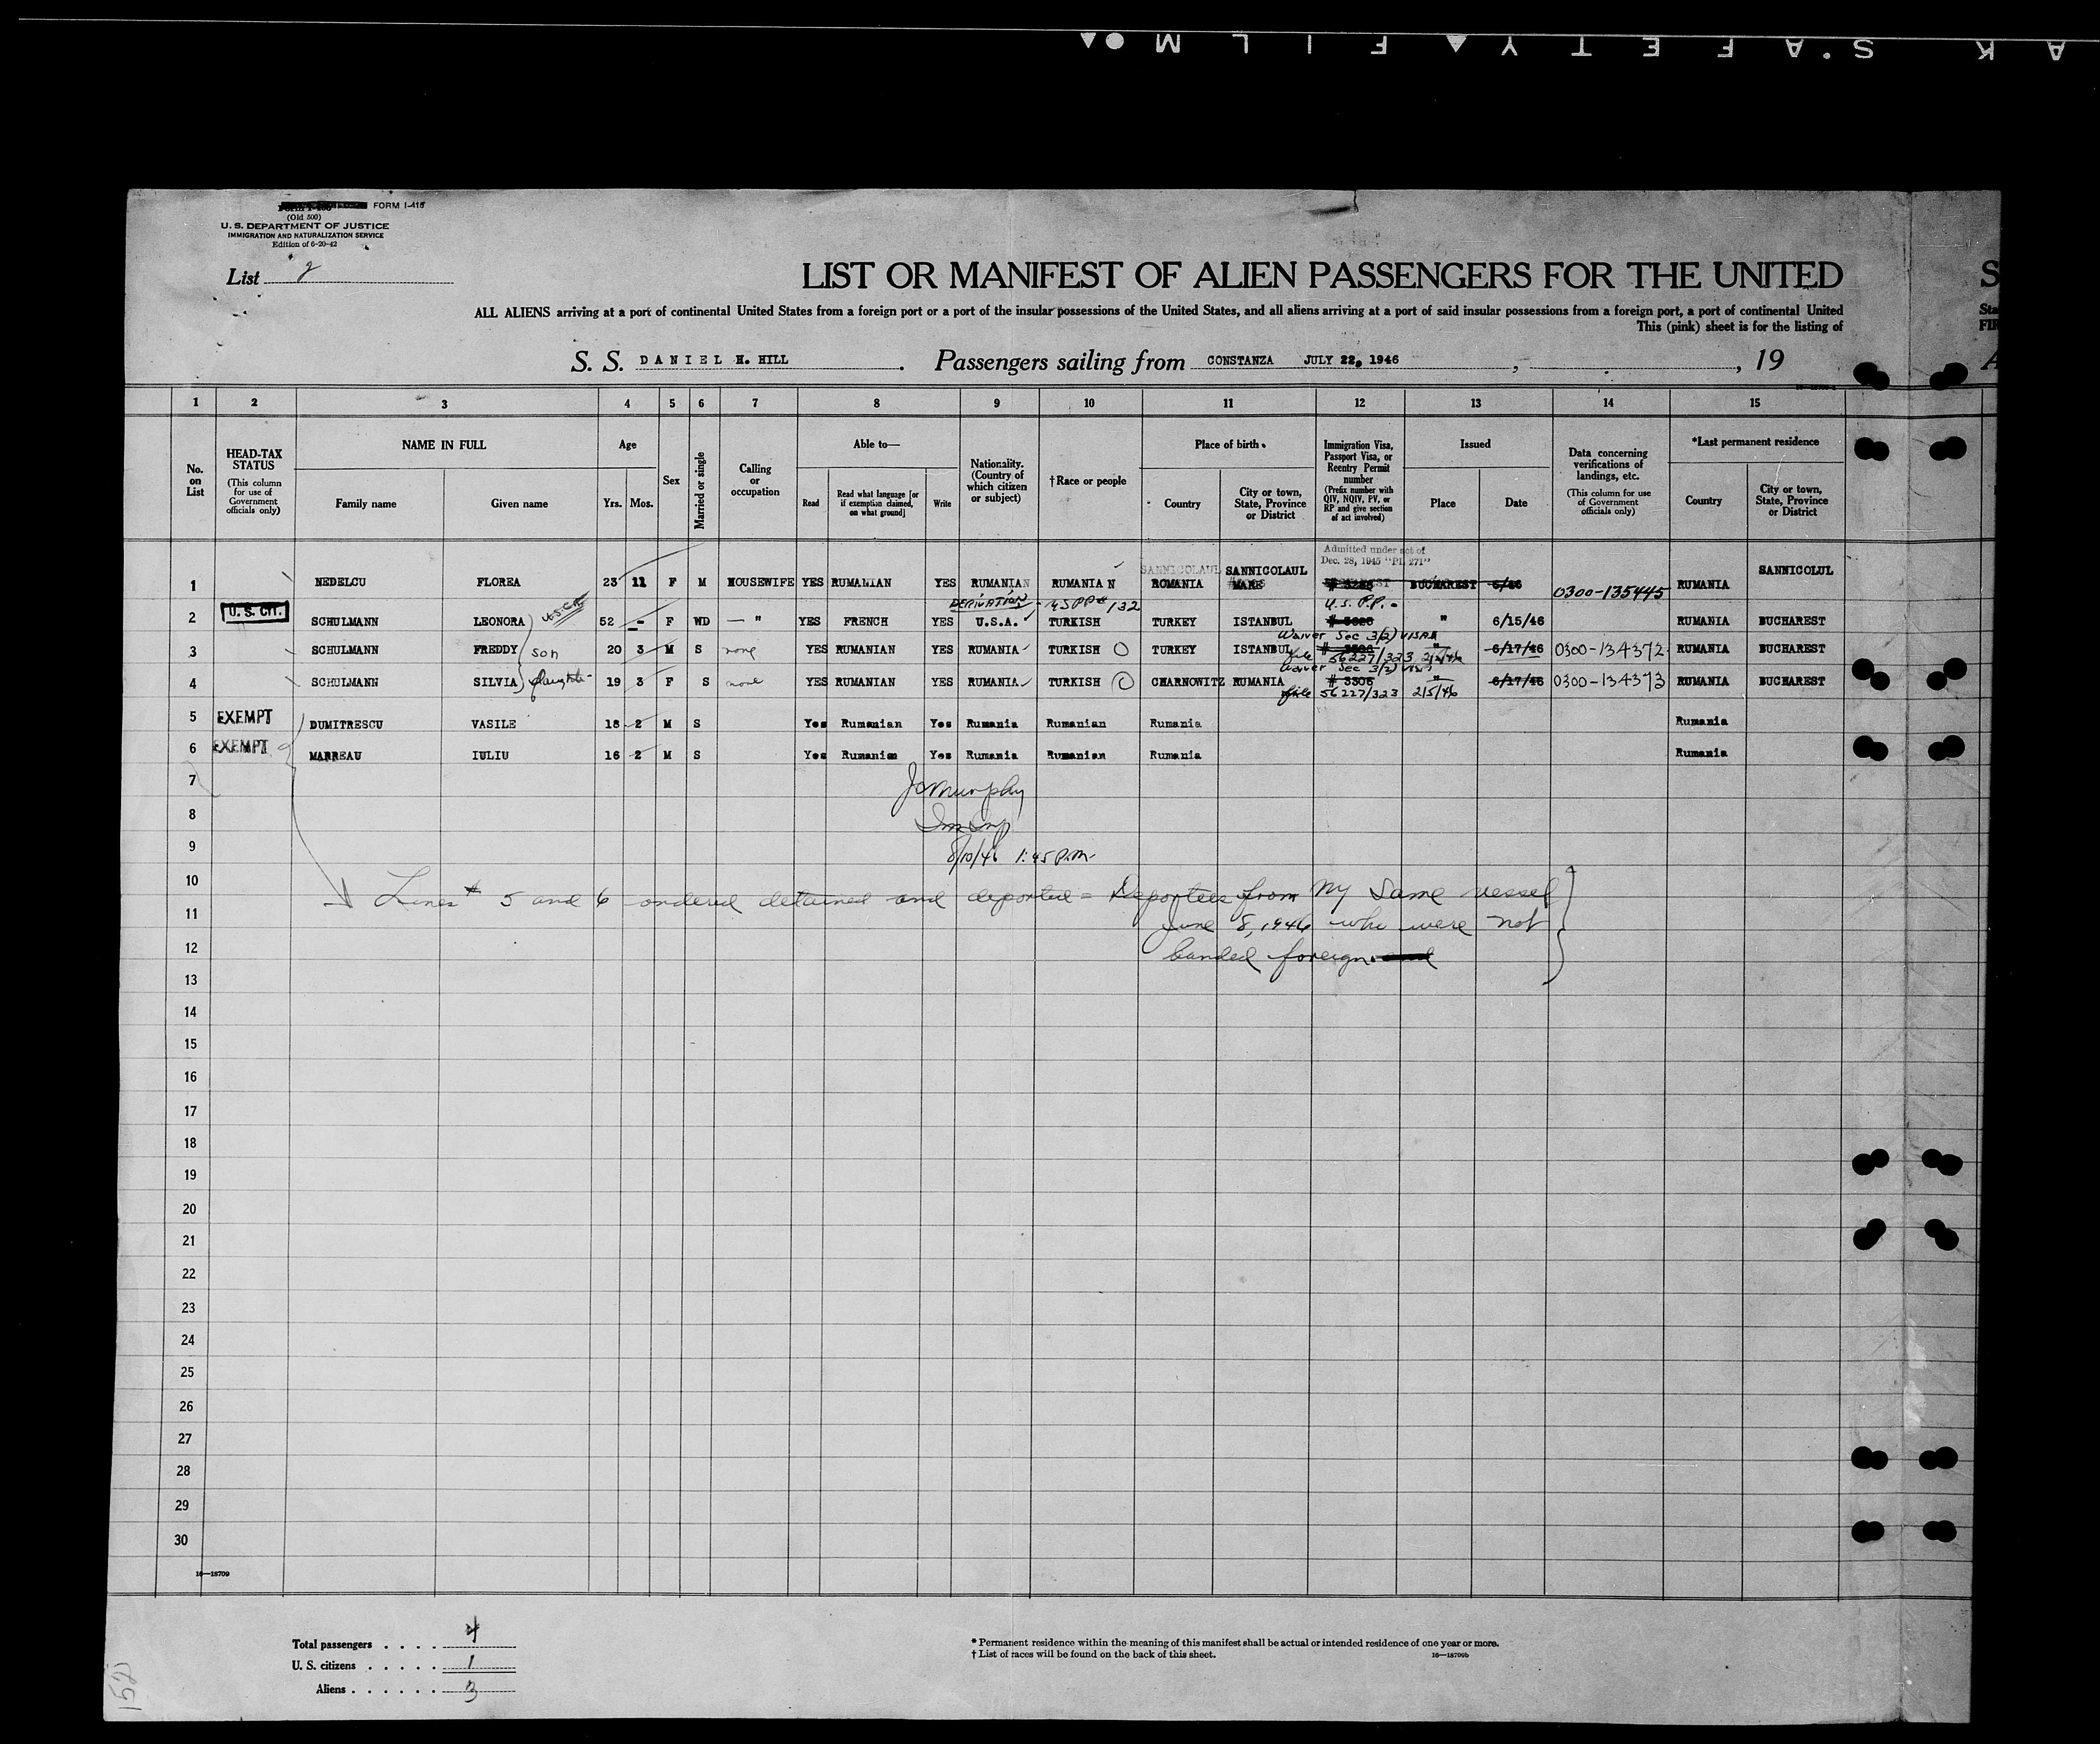 A K S'A F E T Y ▲ F I L M ●▲
FORM I-415
(Old 500)
U. S. DEPARTMENT OF JUSTICE
IMMIGRATION AND NATURALIZATION SERVICE
Edition of 6-20-42
List 2
LIST OR MANIFEST OF ALIEN PASSENGERS FOR THE UNITED
ALL ALIENS arriving at a port of continental United States from a foreign port or a port of the insular possessions of the United States, and all aliens arriving at a port of said insular possessions from a foreign port, a port of continental United
This (pink) sheet is for the listing of
S. S. DANIEL H. HILL. Passengers sailing from CONSTANZA JULY 22, 1946, , 19
1 2 3 4 5 6 7 8 9 10 11 12 13 14 15
No. on List
HEAD-TAX STATUS (This column for use of Government officials only)
NAME IN FULL
Family name Given name
Age
Yrs. Mos.
Sex
Married or single
Calling or occupation
Able to—
Read Read what language [or if exemption claimed, on what ground] Write
Nationality. (Country of which citizen or subject)
†Race or people
Place of birth
Country City or town, State, Province or District
Immigration Visa, Passport Visa, or Reentry Permit number (Prefix number with QIV, NQIV, PV, or RP and give section of act involved)
Issued
Place Date
Data concerning verifications of landings, etc. (This column for use of Government officials only)
*Last permanent residence
Country City or town, State, Province or District
Admitted under act of
Dec. 28, 1945 "PL 271"
1 NEDELCU FLOREA 23 11 F M HOUSEWIFE YES RUMANIAN YES RUMANIAN RUMANIAN SANNICOLAUL ROMANIA SANNICOLAUL MARE BUCHAREST 6/46 0300-135445 RUMANIA SANNICOLUL
DERIVATION - US PP# 132 U.S. P.P. -
2 U. S. CIT. SCHULMANN LEONORA 52 - F WD — " YES FRENCH YES U.S.A. TURKISH TURKEY ISTANBUL " 6/15/46 RUMANIA BUCHAREST
Waiver Sec 3(2) VISA
3 SCHULMANN FREDDY son 20 3 M S none YES RUMANIAN YES RUMANIA TURKISH TURKEY ISTANBUL " 6/17/46 0300-134372 RUMANIA BUCHAREST
file 56227/323 2/5/46
Waiver Sec 3(2) VISA
4 SCHULMANN SILVIA daughter 19 3 F S none YES RUMANIAN YES RUMANIA TURKISH CHARNOWITZ RUMANIA # 3306 " 6/17/46 0300-134373 RUMANIA BUCHAREST
file 56227/323 2/5/46
5 EXEMPT DUMITRESCU VASILE 18 2 M S Yes Rumanian Yes Rumania Rumanian Rumania Rumania
6 EXEMPT MARREAU IULIU 16 2 M S Yes Rumanian Yes Rumania Rumanian Rumania Rumania
7 JCMurphy
8 Im Insp
9 8/10/46 1:45 P.M.
10 Lines # 5 and 6 ordered detained and deported = Deportees from NY Same vessel
11 June 8, 1946 who were not
12 landed foreign.
13
14
15
16
17
18
19
20
21
22
23
24
25
26
27
28
29
30
16—18709
Total passengers . . . . 4
U. S. citizens . . . . . 1
Aliens . . . . . . 3
* Permanent residence within the meaning of this manifest shall be actual or intended residence of one year or more.
† List of races will be found on the back of this sheet.
16—18709b